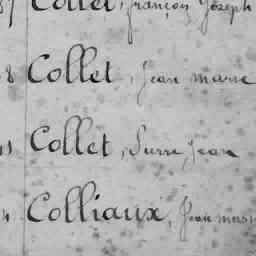 Collet, François Joseph
8 Collet, Jean marie
Collet, Pierre Jean
Colliaux, Jean marie